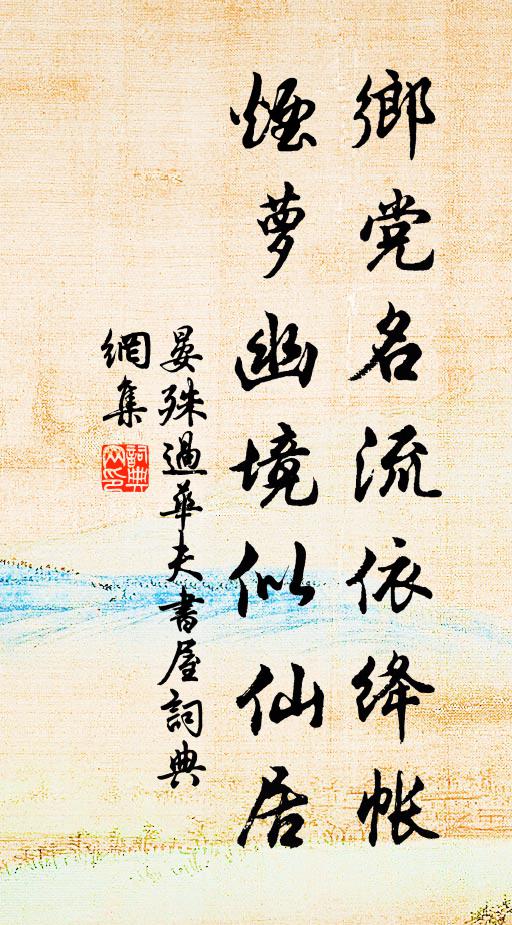 鄉党名流依绛帐
煙萝幽境似仙居
晏殊過華夫書屋詞典
網集
詞典
网印